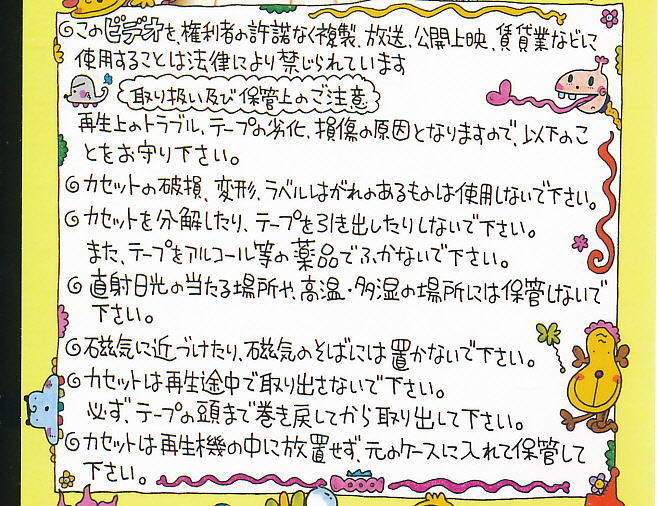 このビデオを、権利者の許諾なく複製、放送、公開上映、賃貸業などに
使用することは法律により禁じられています
取り扱い及び保管上のご注意
再生上のトラブル、テープの劣化、損傷の原因となりますので、以下のこ
とをお守り下さい。
カセットの破損、変形、ラベルはがれのあるものは使用しないで下さい。
カセットを分解したり、テープを引き出したりしないで下さい。
また、テープをアルコール等の薬品でふかないで下さい。
直射日光の当たる場所や、高温・多湿の場所には保管しないで
下さい。
磁気に近づけたり、磁気のそばには置かないで下さい。
カセットは再生途中で取り出さないで下さい。
必ず、テープの頭まで巻き戻してから取り出して下さい。
カセットは再生機の中に放置せず、元のケースに入れて保管して
下さい。